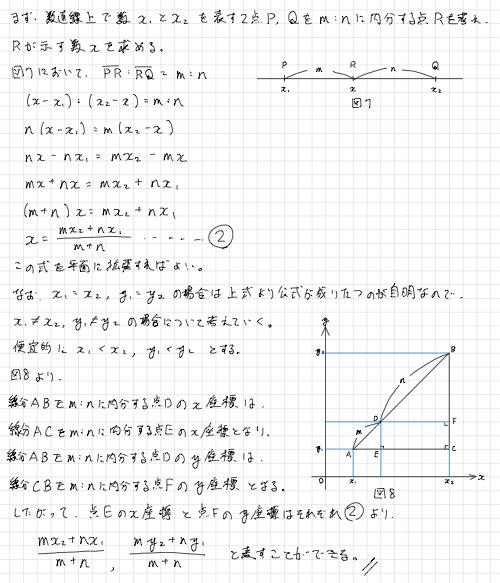 まず、数直線上で数 x₁ と x₂ を表す2点 P, Q を m:n に内分する点 R を考え、
R が示す数 x を求める。
図7において、PR : RQ = m : n
P m R n Q
x₁ x x₂
図7
(x-x₁) : (x₂-x) = m : n
n(x-x₁) = m(x₂-x)
nx - nx₁ = mx₂ - mx
mx + nx = mx₂ + nx₁
(m+n)x = mx₂ + nx₁
x = (mx₂+nx₁)/(m+n) ・・・・・ ②
この式を平面に拡張すればよい。
なお、x₁ = x₂, y₁ = y₂ の場合は上式より公式が成りたつのが自明なので、
x₁ ≠ x₂, y₁ ≠ y₂ の場合について考えていく。
便宜的に x₁ < x₂, y₁ < y₂ とする。
図8より、
線分ABをm:nに内分する点Dのx座標は、
線分ACをm:nに内分する点Eのx座標となり、
線分ABをm:nに内分する点Dのy座標は、
線分CBをm:nに内分する点Fのy座標となる。
y
y₂ B
n
D F
m
y₁ A E C
O x₁ x₂ x
図8
したがって、点Eのx座標と点Fのy座標はそれぞれ②より、
(mx₂+nx₁)/(m+n) , (my₂+ny₁)/(m+n) と表すことができる。